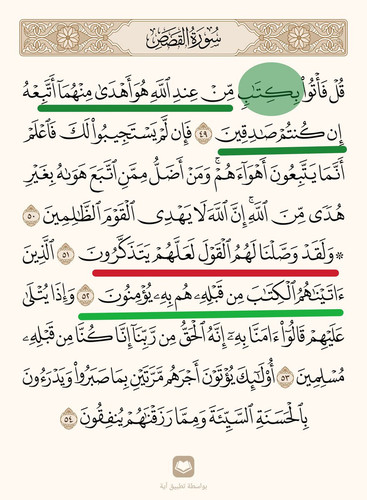 سُورَةُ القَصَصِ
قُلْ فَأْتُوا۟ بِكِتَـٰبٍ مِّنْ عِندِ ٱللَّهِ هُوَ أَهْدَىٰ مِنْهُمَآ أَتَّبِعْهُ
إِن كُنتُمْ صَـٰدِقِينَ ٤٩ فَإِن لَّمْ يَسْتَجِيبُوا۟ لَكَ فَٱعْلَمْ
أَنَّمَا يَتَّبِعُونَ أَهْوَآءَهُمْ ۚ وَمَنْ أَضَلُّ مِمَّنِ ٱتَّبَعَ هَوَىٰهُ بِغَيْرِ
هُدًى مِّنَ ٱللَّهِ ۚ إِنَّ ٱللَّهَ لَا يَهْدِى ٱلْقَوْمَ ٱلظَّـٰلِمِينَ ٥٠
* وَلَقَدْ وَصَّلْنَا لَهُمُ ٱلْقَوْلَ لَعَلَّهُمْ يَتَذَكَّرُونَ ٥١ ٱلَّذِينَ
ءَاتَيْنَـٰهُمُ ٱلْكِتَـٰبَ مِن قَبْلِهِۦ هُم بِهِۦ يُؤْمِنُونَ ٥٢ وَإِذَا يُتْلَىٰ
عَلَيْهِمْ قَالُوٓا۟ ءَامَنَّا بِهِۦٓ إِنَّهُ ٱلْحَقُّ مِن رَّبِّنَآ إِنَّا كُنَّا مِن قَبْلِهِۦ
مُسْلِمِينَ ٥٣ أُو۟لَـٰٓئِكَ يُؤْتَوْنَ أَجْرَهُم مَّرَّتَيْنِ بِمَا صَبَرُوا۟ وَيَدْرَءُونَ
بِٱلْحَسَنَةِ ٱلسَّيِّئَةَ وَمِمَّا رَزَقْنَـٰهُمْ يُنفِقُونَ ٥٤
بواسطة تطبيق آية